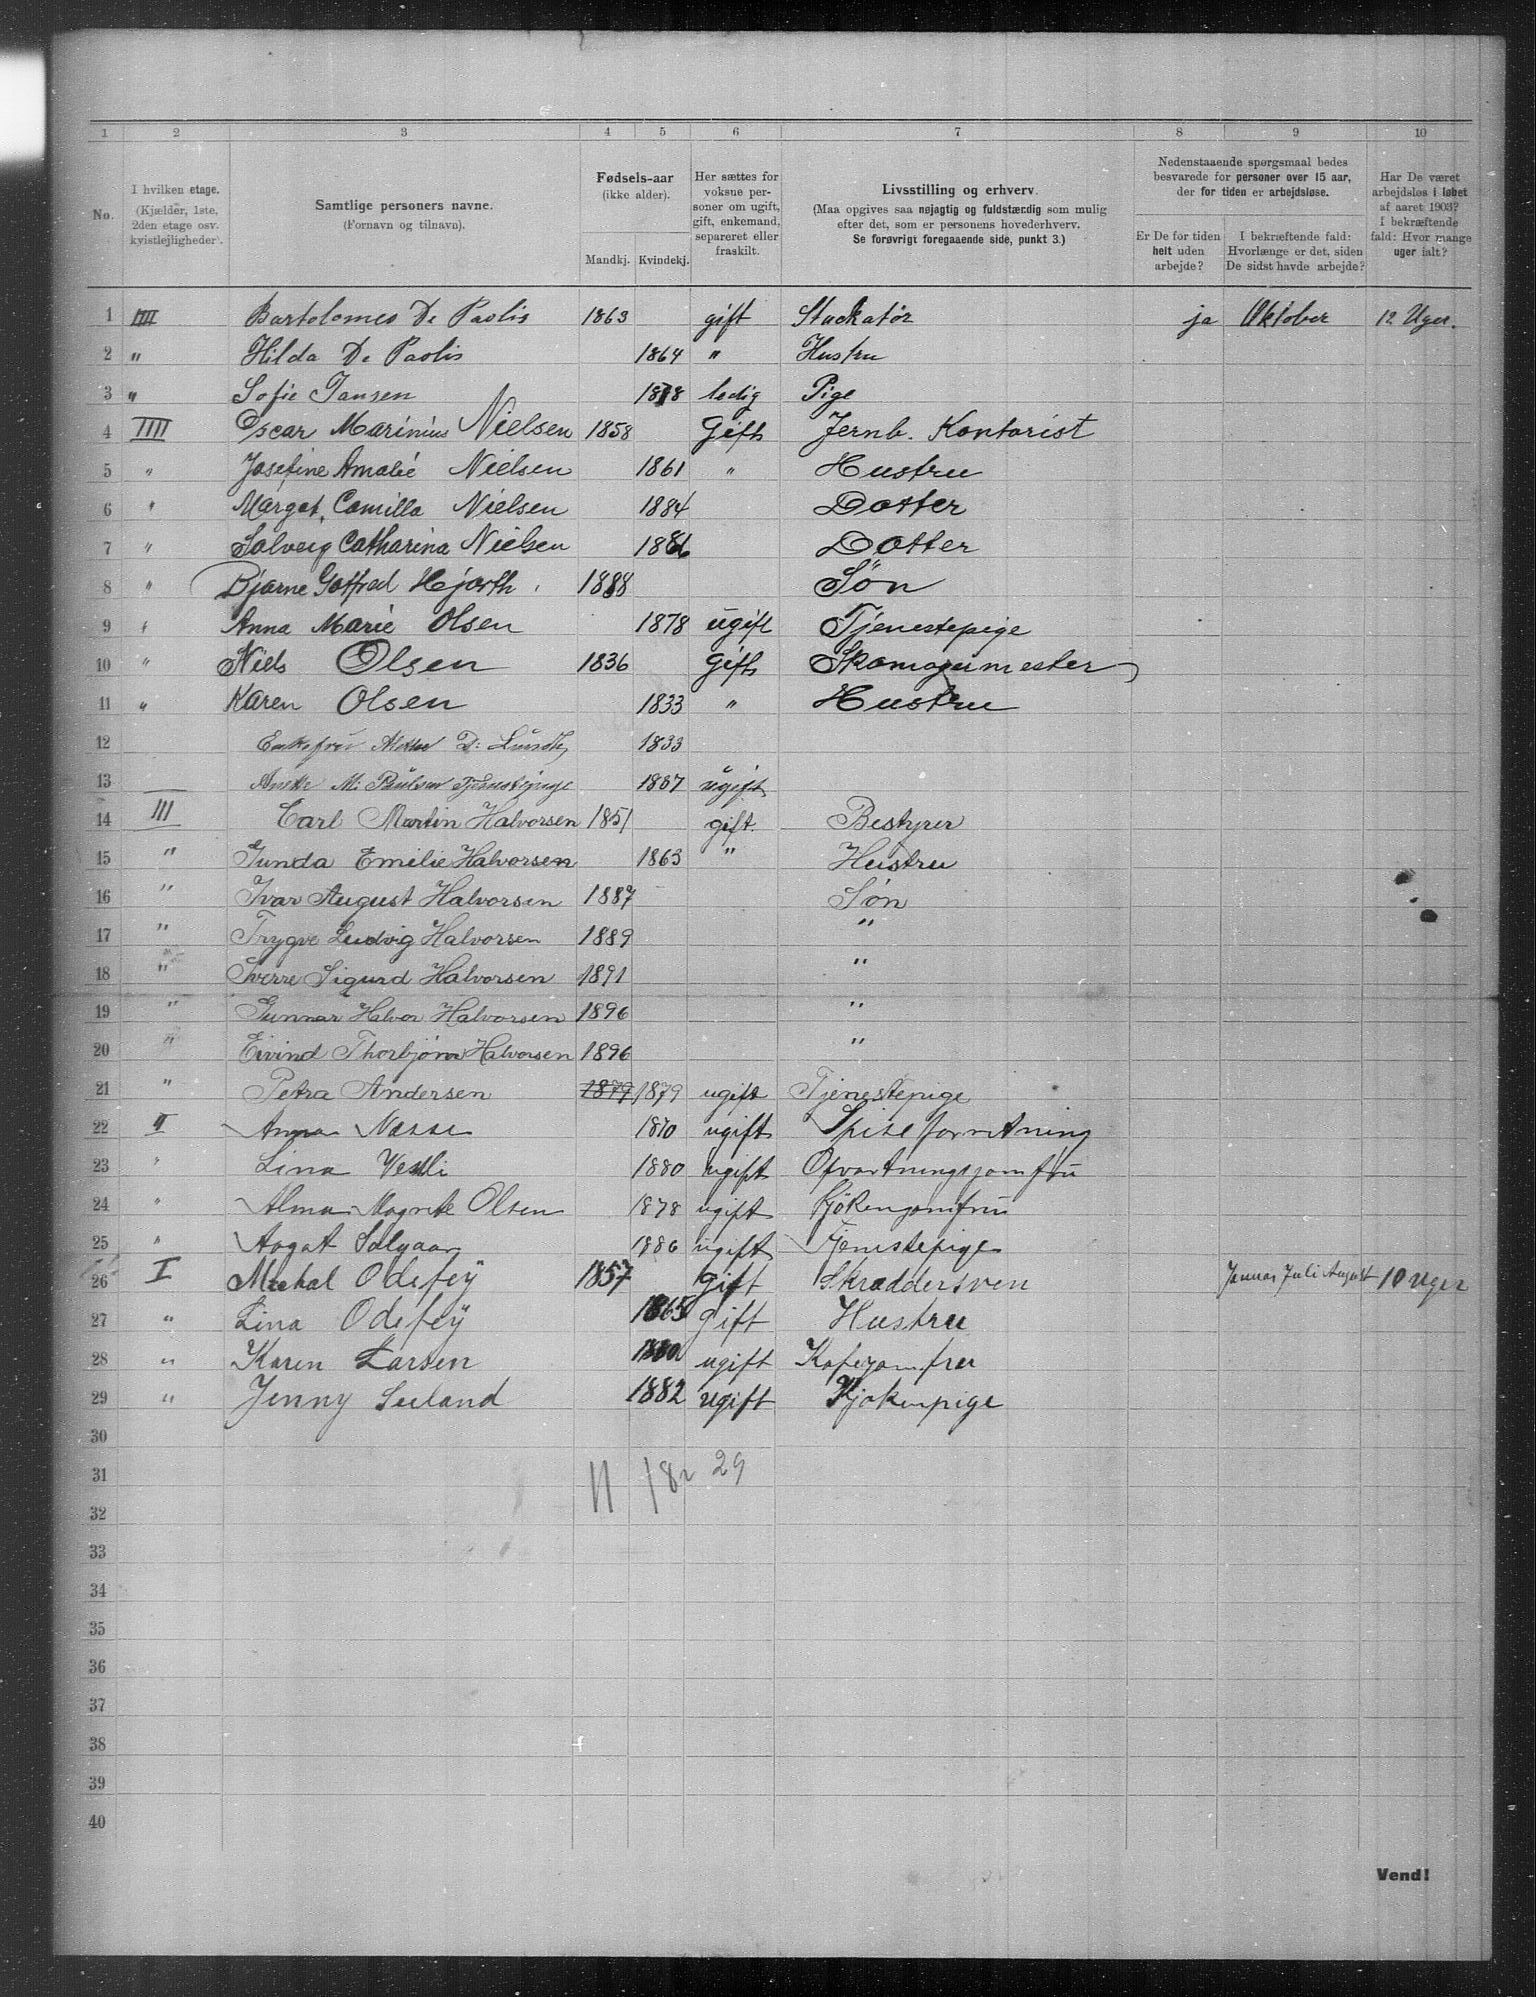 1 2 3 4 5 6 7 8 9 10
No.
I hvilken etage.
(Kjælder, 1ste,
2den etage osv.
kvistlejligheder).
Samtlige personers navne.
(Fornavn og tilnavn).
Fødsels-aar
(ikke alder).
Mandkj. Kvindekj.
Her sættes for
voksne per-
soner om ugift,
gift, enkemand,
separeret eller
fraskilt.
Livsstilling og erhverv.
(Maa opgives saa nøjagtig og fuldstændig som mulig
efter det, som er personens hovederhverv.
Se forøvrigt foregaaende side, punkt 3.)
Nedenstaaende spørgsmaal bedes
besvarede for personer over 15 aar,
der for tiden er arbejdsløse.
Er De for tiden
helt uden
arbejde?
I bekræftende fald:
Hvorlænge er det, siden
De sidst havde arbejde?
Har De været
arbejdsløs i løbet
af aaret 1903?
I bekræftende
fald: Hvor mange
uger ialt?
1 IIII Bartolomeo De Paolis 1863 gift Stuckatør ja Oktober 12 Uger.
2 " Hilda De Paolis 1864 " Hustru
3 " Sofie Jansen 1878 ledig Pige
4 IIII Oscar Marinius Nielsen 1858 Gift Jernb. Kontorist
5 " Josefine Amalie Nielsen 1861 " Hustru
6 " Margot. Camilla Nielsen 1884 Dotter
7 " Solveig Catharina Nielsen 1886 Dotter
8 " Bjarne Gotfred Hjorth 1888 Søn
9 " Anna Marie Olsen 1878 ugift Tjenestepige
10 " Niels Olsen 1836 Gift Skomagermester
11 " Karen Olsen 1833 " Hustru
12 Enkefru D: Lundh 1833
13 M: Paulsen Tjenestepige 1887 ugift
14 III Carl Martin Halvorsen 1851 gift. Bestyrer
15 " Gunda Emilie Halvorsen 1863 " Hustru
16 " Ivar August Halvorsen 1887 Søn
17 " Trygve Ludvig Halvorsen 1889 "
18 " Sverre Sigurd Halvorsen 1891 "
19 " Gunnar Halvor Halvorsen 1896 "
20 " Eivind Thorbjørn Halvorsen 1896 "
21 " Petra Andersen 1879 1879 ugift Tjenestepige
22 II Anna Næsse 1870 ugift Spiseforretning
23 " Lina Vestli 1880 ugift Opvartningsjomfru
24 " Alma Magrete Olsen 1878 ugift Kjøkenjomfru
25 " Aagot Solgaar 1886 ugift Tjenestepige
26 I Mickal Odefey 1857 gift Skræddersven Januar Juli August 10 Uger
27 " Lina Odefey 1865 gift Hustru
28 " Karen Larsen 1880 ugift Kafejomfru
29 " Jenny Seiland 1882 ugift Kjøkenpige
30
31 11 18 29
32
33
34
35
36
37
38
39
40
Vend!